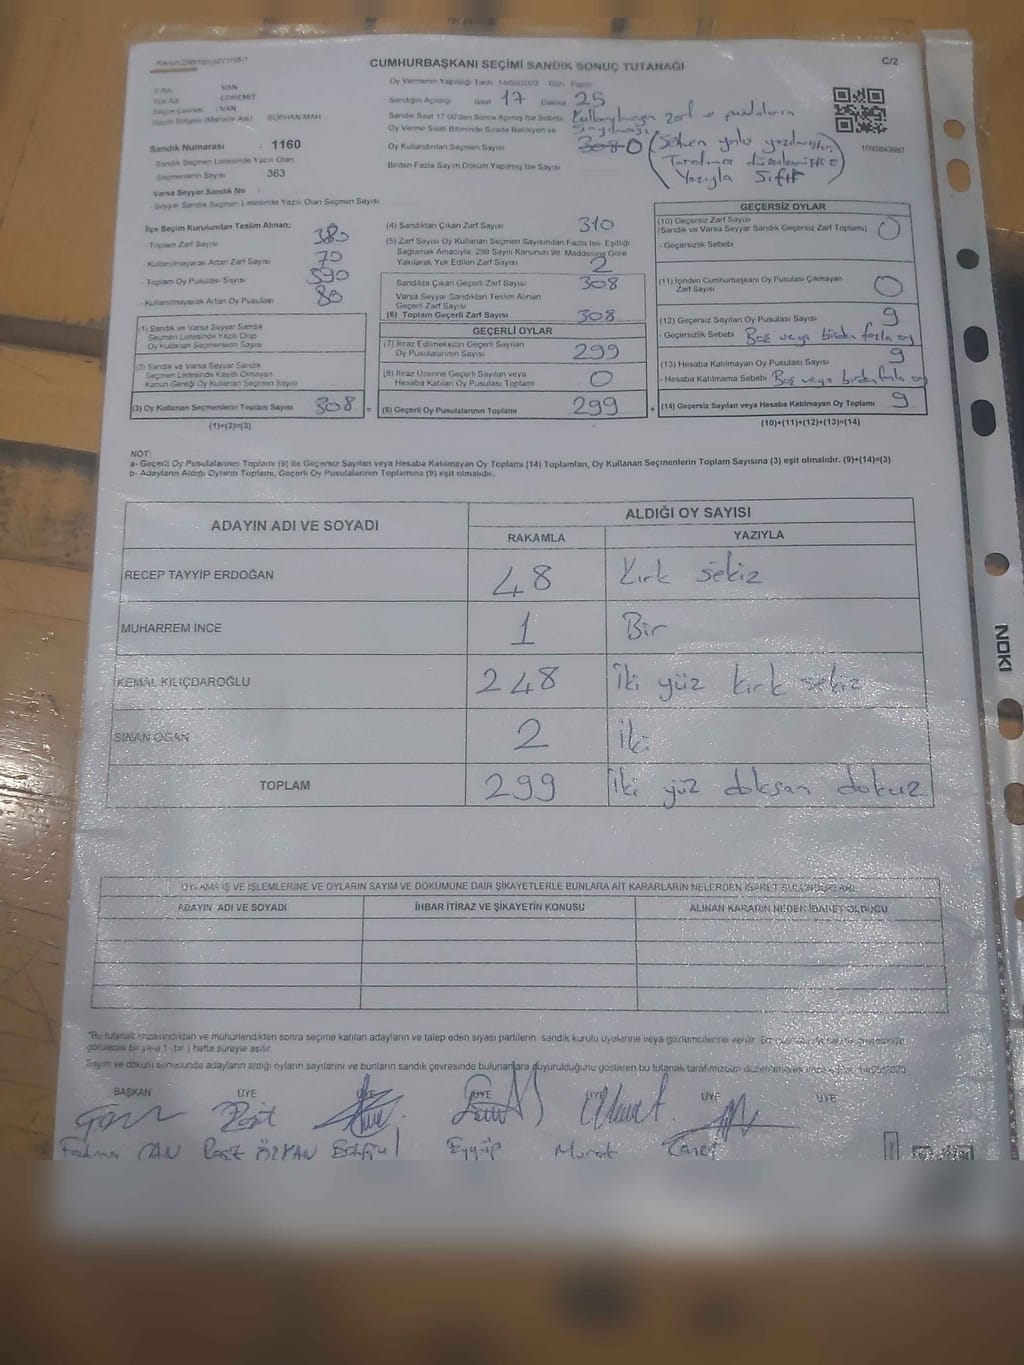 CUMHURBAŞKANI SEÇİMİ SANDIK SONUÇ TUTANAĞI
C/2
Oy Vermenin Yapıldığı Tarih 14/05/2023 Gün Pazar
VAN
EDREMİT
VAN
SÜPHAN MAH
Sandığın Açıldığı Saat 17 Dakika 25
Sandık Saat 17.00'den Sonra Açılmış İse Sebebi Kullanılmayan zarf ve pusulaların
Oy Verme Saati Bitiminde Sırada Bekleyen ve sayılması
Oy Kullandırılan Seçmen Sayısı 308 0 (Sehven yanlış yazılmıştır.
Tarafımca düzenlenmiştir
Yazıyla Sıfır)
Birden Fazla Sayım Döküm Yapılmış İse Sayısı
1093843987
Sandık Numarası : 1160
Sandık Seçmen Listesinde Yazılı Olan
Seçmenlerin Sayısı 363
Varsa Seyyar Sandık No :
- Seyyar Sandık Seçmen Listesinde Yazılı Olan Seçmen Sayısı
İlçe Seçim Kurulundan Teslim Alınan;
- Toplam Zarf Sayısı 380
- Kullanılmayarak Artan Zarf Sayısı 70
- Toplam Oy Pusulası Sayısı 390
- Kullanılmayarak Artan Oy Pusulası 80
(1) Sandık ve Varsa Seyyar Sandık
Seçmen Listesinde Yazılı Olup
Oy Kullanan Seçmenlerin Sayısı
(2) Sandık ve Varsa Seyyar Sandık
Seçmen Listesinde Kayıtlı Olmayan
Kanun Gereği Oy Kullanan Seçmen Sayısı
(3) Oy Kullanan Seçmenlerin Toplam Sayısı 308 =
(1)+(2)=(3)
(4) Sandıktan Çıkan Zarf Sayısı 310
(5) Zarf Sayısı Oy Kullanan Seçmen Sayısından Fazla İse, Eşitliği
Sağlamak Amacıyla, 298 Sayılı Kanunun 98. Maddesine Göre
Yakılarak Yok Edilen Zarf Sayısı 2
Sandıkta Çıkan Geçerli Zarf Sayısı 308
Varsa Seyyar Sandıktan Teslim Alınan
Geçerli Zarf Sayısı
(6) Toplam Geçerli Zarf Sayısı 308
GEÇERLİ OYLAR
(7) İtiraz Edilmeksizin Geçerli Sayılan
Oy Pusulalarının Sayısı 299
(8) İtiraz Üzerine Geçerli Sayılan veya
Hesaba Katılan Oy Pusulası Toplamı 0
(9) Geçerli Oy Pusulalarının Toplamı 299 +
GEÇERSİZ OYLAR
(10) Geçersiz Zarf Sayısı
(Sandık ve Varsa Seyyar Sandık Geçersiz Zarf Toplamı) 0
- Geçersizlik Sebebi
(11) İçinden Cumhurbaşkanı Oy Pusulası Çıkmayan
Zarf Sayısı 0
(12) Geçersiz Sayılan Oy Pusulası Sayısı 9
- Geçersizlik Sebebi Boş veya birden fazla oy
(13) Hesaba Katılmayan Oy Pusulası Sayısı 9
- Hesaba Katılmama Sebebi Boş veya birden fazla oy
(14) Geçersiz Sayılan veya Hesaba Katılmayan Oy Toplamı 9
(10)+(11)+(12)+(13)=(14)
NOT:
a- Geçerli Oy Pusulalarının Toplamı (9) ile Geçersiz Sayılan veya Hesaba Katılmayan Oy Toplamı (14) Toplamları, Oy Kullanan Seçmenlerin Toplam Sayısına (3) eşit olmalıdır. (9)+(14)=(3)
b- Adayların Aldığı Oyların Toplamı, Geçerli Oy Pusulalarının Toplamına (9) eşit olmalıdır.
ADAYIN ADI VE SOYADI
ALDIĞI OY SAYISI
RAKAMLA YAZIYLA
RECEP TAYYİP ERDOĞAN 48 Kırk sekiz
MUHARREM İNCE 1 Bir
KEMAL KILIÇDAROĞLU 248 İki yüz kırk sekiz
SİNAN OĞAN 2 İki
TOPLAM 299 İki yüz doksan dokuz
OYLAMA İŞ VE İŞLEMLERİNE VE OYLARIN SAYIM VE DÖKÜMÜNE DAİR ŞİKAYETLERLE BUNLARA AİT KARARLARIN NELERDEN İBARET BULUNDUKLARI
ADAYIN ADI VE SOYADI İHBAR İTİRAZ VE ŞİKAYETİN KONUSU ALINAN KARARIN NEDEN İBARET OLDUĞU
*Bu tutanak imzalandıktan ve mühürlendikten sonra seçime katılan adayların ve talep eden siyasi partilerin sandık kurulu üyelerine veya gözlemcilerine verilir.
görülecek bir yere 1 (bir) hafta süreyle asılır.
Sayım ve döküm sonucunda adayların aldığı oyların sayılarını ve bunların sandık çevresinde bulunanlara duyurulduğunu gösteren bu tutanak tarafımızdan düzenlenerek imza 14/05/2023
BAŞKAN ÜYE ÜYE ÜYE ÜYE ÜYE ÜYE
Fatma CAN Raşit ÖZKAN Ertuğrul Eyyüp Murat Caner
NOKI